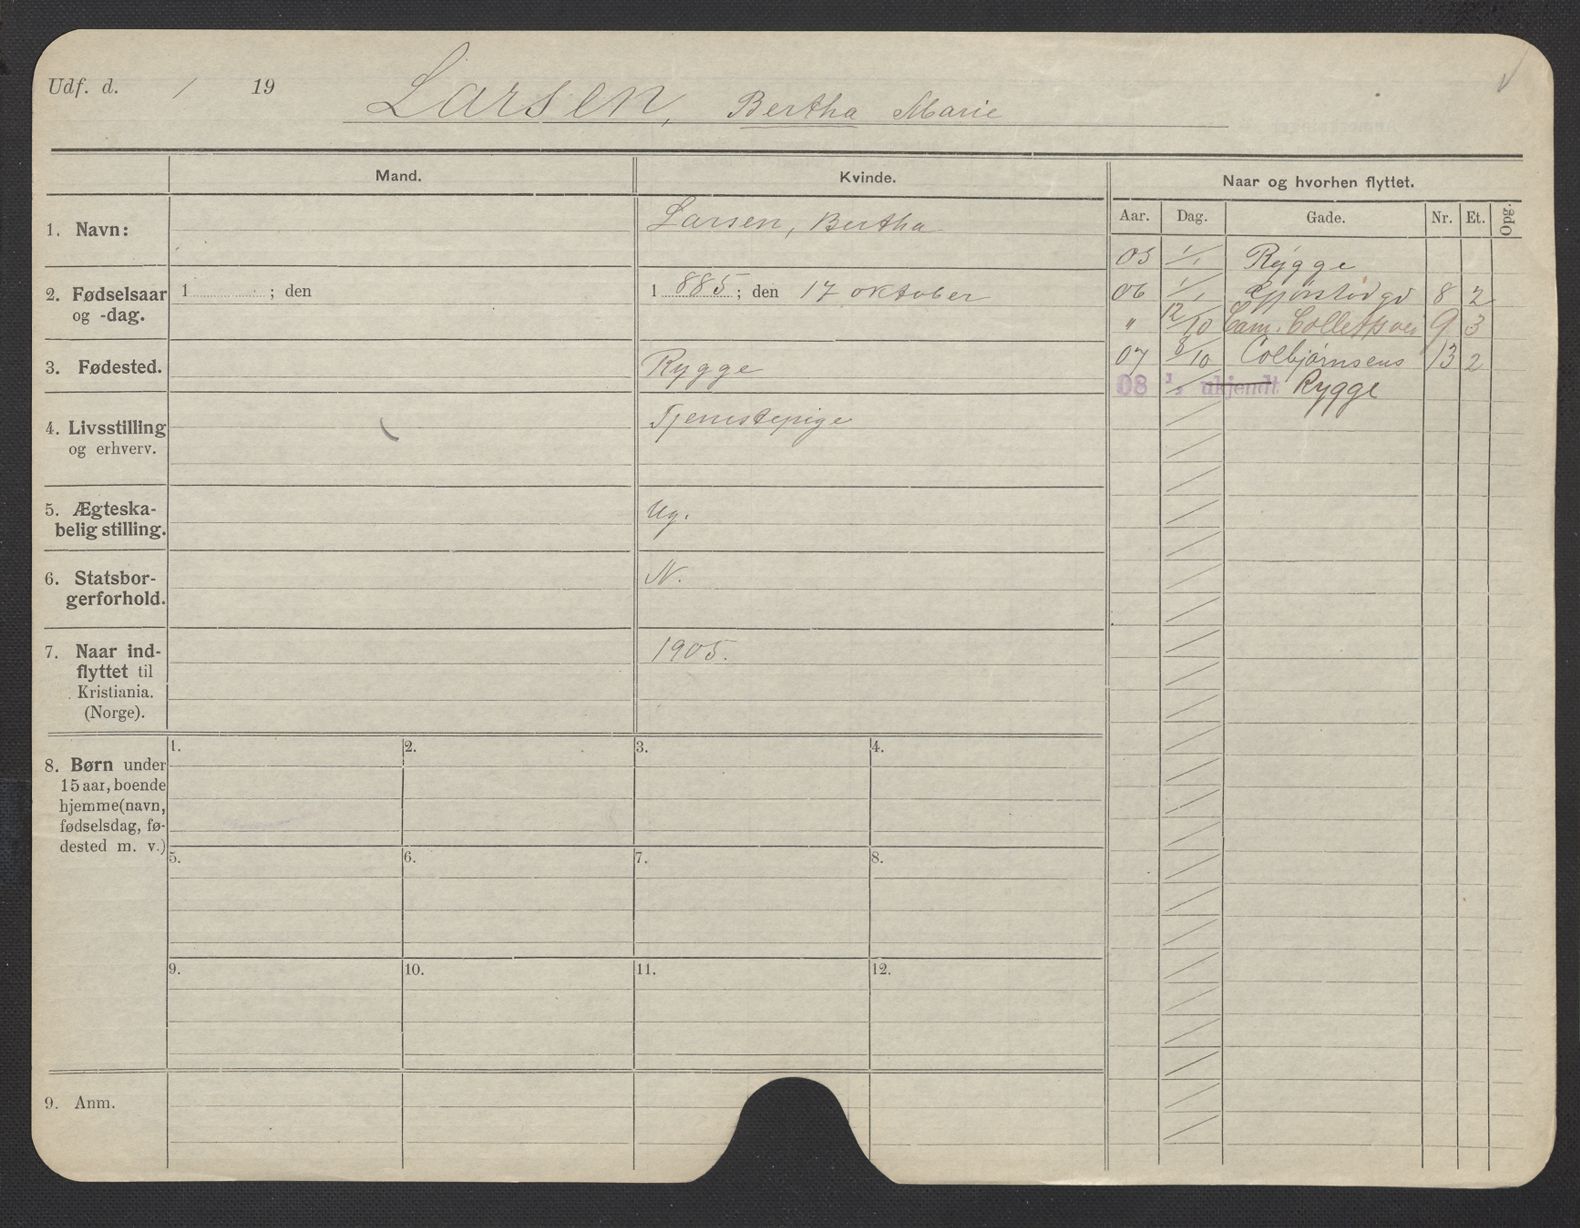 Udf. d. / 19
Larsen, Bertha Marie
Mand.
Kvinde.
Naar og hvorhen flyttet.
Aar. Dag. Gade. Nr. Et. Opg.
1. Navn:
Larsen, Bertha
05 1/1 Rygge
2. Fødselsaar
og -dag.
1 ; den
1 885 ; den 17 oktober
06 1/1 8 2
" 12/10 Cam. Colletts vei 9 3
3. Fødested.
Rygge
07 8/10 Colbjørnsens 13 2
08 1/1 ukjendt Rygge
4. Livsstilling
og erhverv.
Tjenestepige
5. Ægteska-
belig stilling.
Ug.
6. Statsbor-
gerforhold.
N.
7. Naar ind-
flyttet til
Kristiania.
(Norge).
1905.
8. Børn under
15 aar, boende
hjemme (navn,
fødselsdag, fø-
dested m. v.)
1. 2. 3. 4.
5. 6. 7. 8.
9. 10. 11. 12.
9. Anm.